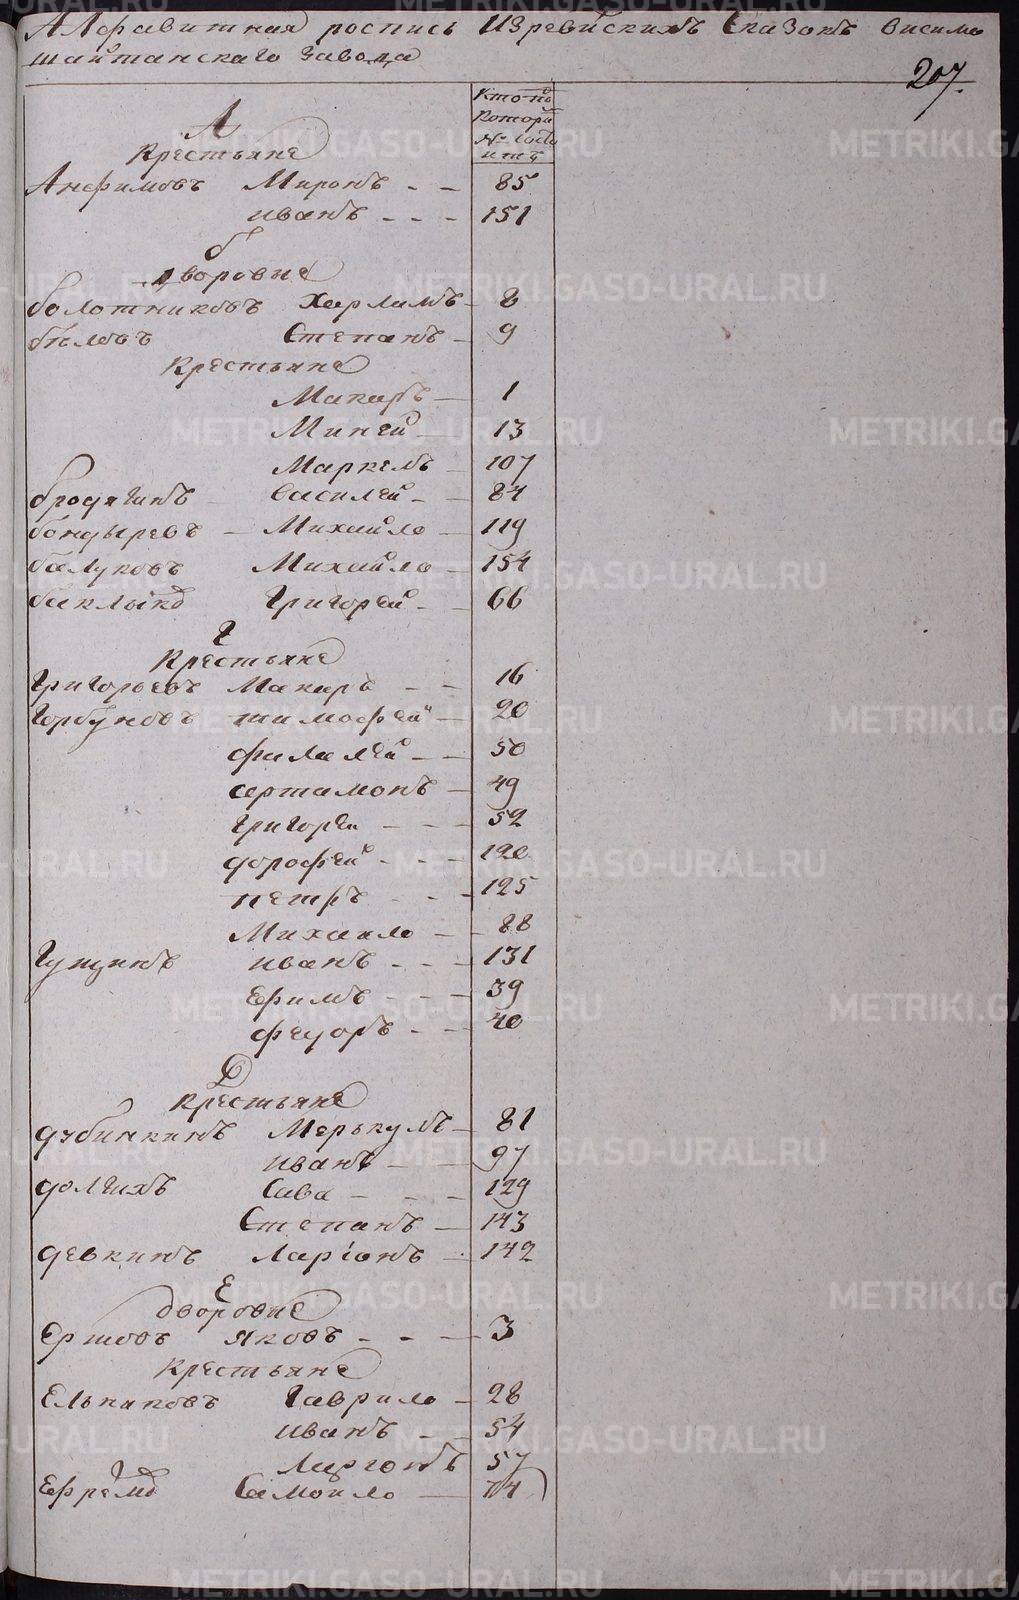 Алфавитная роспись Изревискихъ Сказокъ висимо
шайтанскаго завода
207.
Кто по
которы
№ состо
итъ
А
Крестьяне
Анфимовъ Миронъ - - 85
иванъ - - - 151
б
дворовые
болотниковъ Харламъ - 8
бѣловъ Степанъ - 9
Крестьяне
Макаръ - 1
Миней - 13
Маркелъ - 107
бродягинъ - Василей - - 84
бондыревъ - Михайло - 119
балуковъ Михайло - 154
Григорей - - 66
Г
Крестьяне
Григорьевъ Макаръ - - 16
Горбуновъ тимофей - 20
фалалей - - 50
сартамонъ - 49
Григорей - - - 52
дорофей - - - 120
петръ - - - 125
Михаило - - 88
Гущинъ иванъ - - - 131
Ефимъ - - - 39
федоръ - - - 40
Д
крестьяне
дубинкинъ Меркулъ - 81
иванъ - - 97
долгихъ Сава - - - 129
Степанъ - 143
девкинъ Ларіонъ - 142
Е
дворовые
Ершовъ яковъ - - - 3
крестьяне
Ельпаковъ Гаврило - 28
иванъ - - 54
Ларгонъ 57
Самоило - 74
METRIKI.GASO-URAL.RU